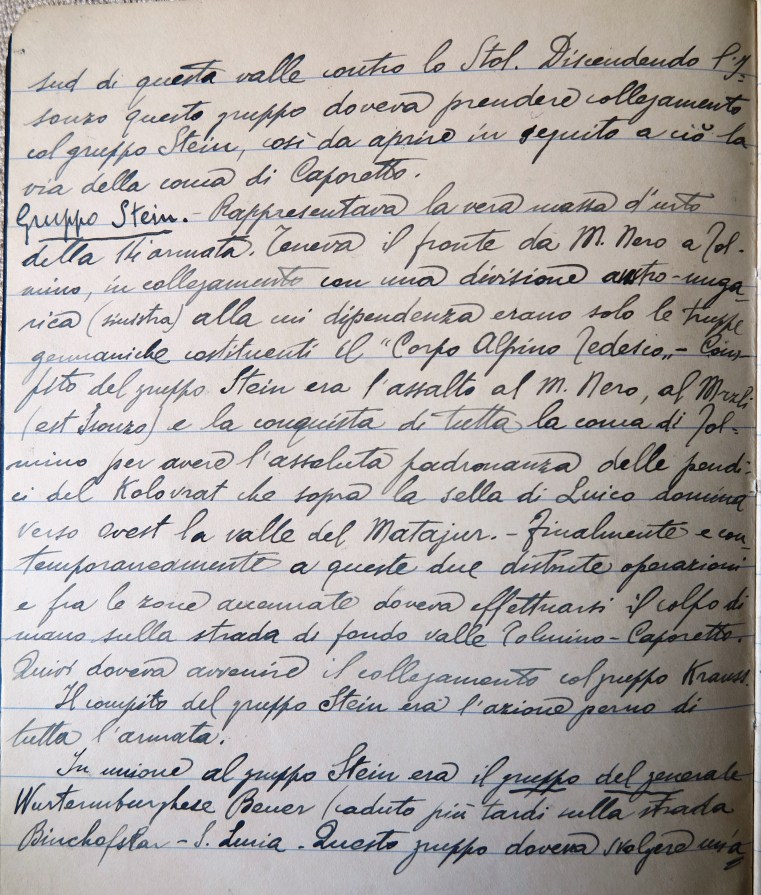 sud di questa valle contro lo Stol. Discendendo l'I-
sonzo questo gruppo doveva prendere collegamento
col gruppo Stein, così da aprire in seguito a ciò la
via della conca di Caporetto.
Gruppo Stein. - Rappresentava la vera massa d'urto
della 14 armata. Teneva il fronte da M. Nero a Tol-
mino, in collegamento con una divisione austro-unga-
rica (sinistra) alla cui dipendenza erano solo le truppe
germaniche costituenti il "Corpo Alpino Tedesco„ - Com-
pito del gruppo Stein era l'assalto al M. Nero, al Mrzli
(est Isonzo) e la conquista di tutta la conca di Tol-
mino per avere l'assoluta padronanza delle pendi-
ci del Kolovrat che sopra la sella di Luico domina
verso ovest la valle del Matajur. - Finalmente e con-
temporaneamente a queste due distinte operazioni
e fra le zone accennate doveva effettuarsi il colpo di
mano sulla strada di fondo valle Tolmino-Caporetto.
Quivi doveva avvenire il collegamento col gruppo Krauss.
Il compito del gruppo Stein era l'azione perno di
tutta l'armata.
In unione al gruppo Stein era il gruppo del generale
Wurtemburghese Berrer (caduto più tardi sulla strada
- S. Lucia. Questo gruppo doveva svolgere un'a